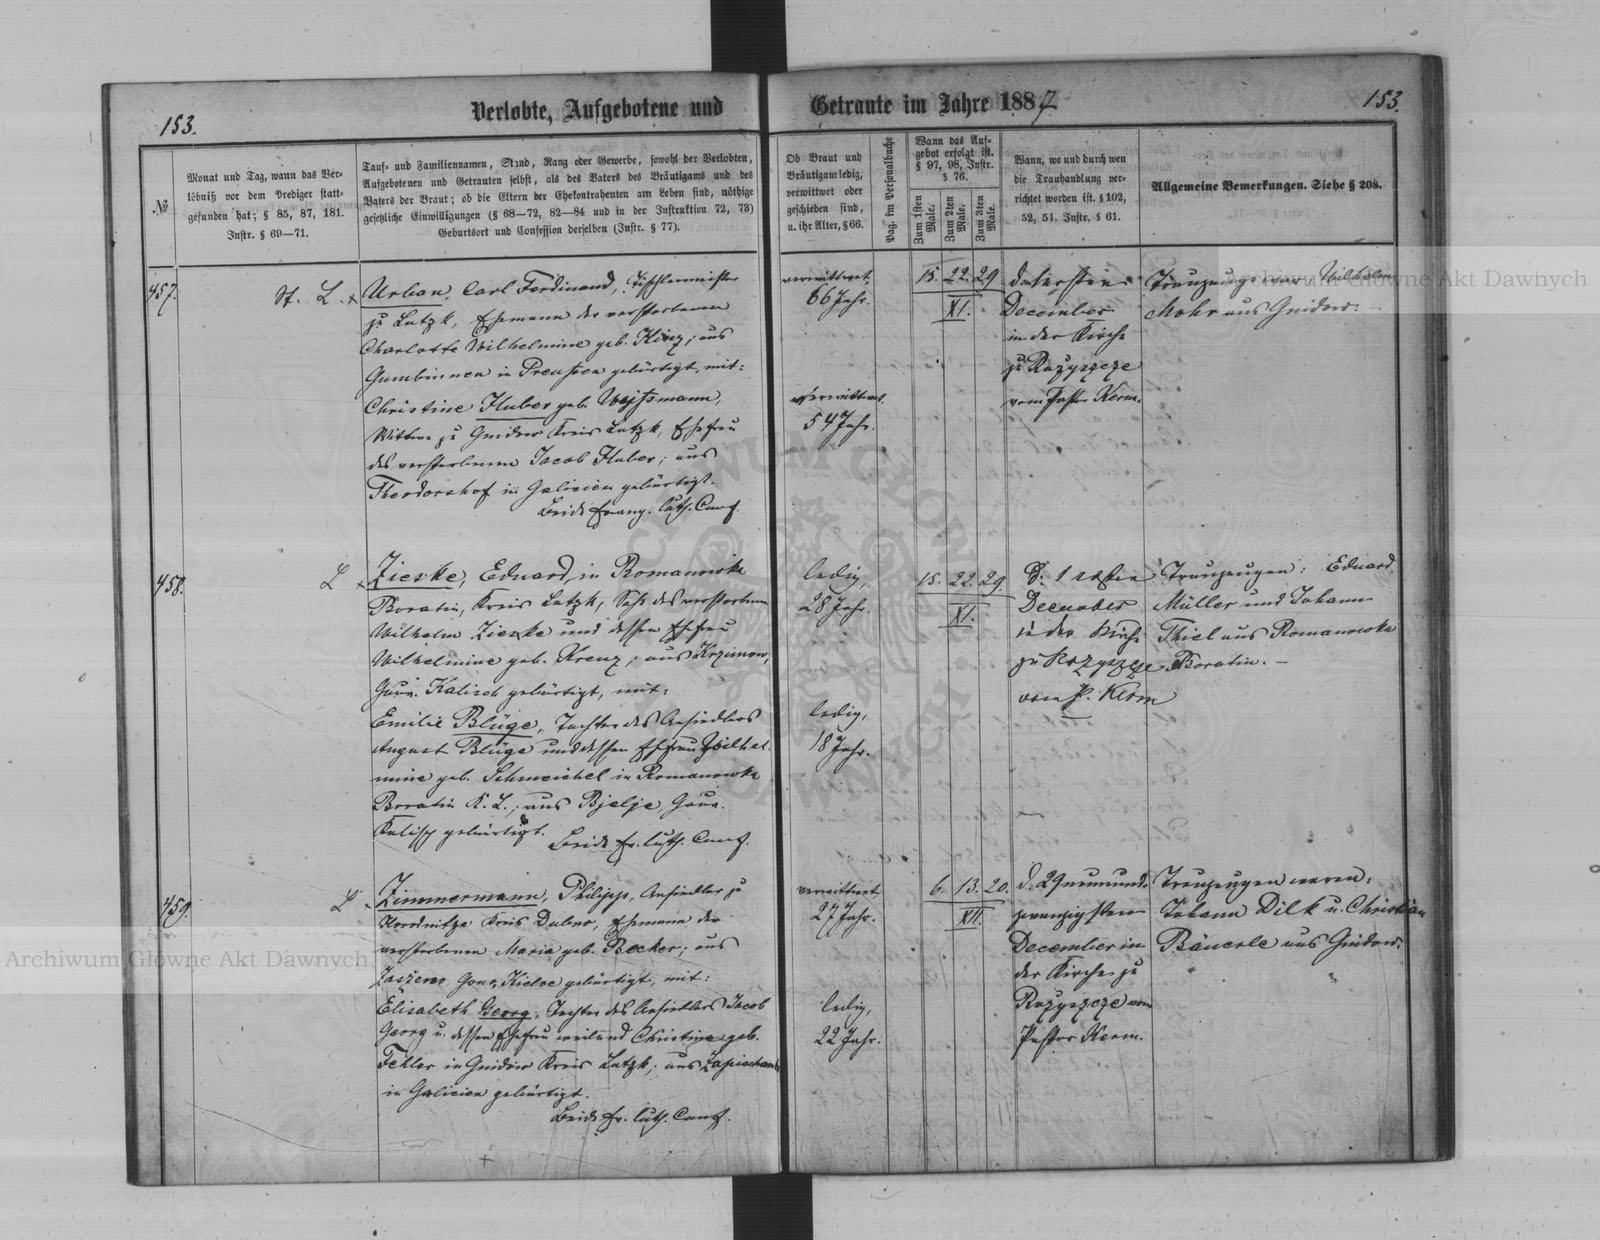 153.
Verlobte, Aufgebotene und
Getraute im Jahre 1887
153.
№
Monat und Tag, wann das Ver-
löbniß vor dem Prediger statt-
gefunden hat; § 85, 87, 181.
Instr. § 69—71.
Tauf- und Familiennamen, Stand, Rang oder Gewerbe, sowohl der Verlobten,
Aufgebotenen und Getrauten selbst, als des Vaters des Bräutigams und des
Vaters der Braut; ob die Eltern der Ehekontrahenten am Leben sind, nöthige
gesetzliche Einwilligungen (§ 68—72, 82—84 und in der Instruktion 72, 73)
Geburtsort und Confession derselben (Instr. § 77).
Ob Braut und
Bräutigam ledig,
verwittwet oder
geschieden sind,
u. ihr Alter, § 66.
Pag. im Personalbuche
Wann das Auf-
gebot erfolgt ist.
§ 97, 98, Instr.
§ 76.
Zum 1sten Male.
Zum 2ten Male.
Zum 3ten Male.
Wann, wo und durch wen
die Trauhandlung ver-
richtet worden ist. § 102,
52, 51. Instr. § 61.
Allgemeine Bemerkungen. Siehe § 208.
457.
St. L. x
Urban, Carl Ferdinand, Tischlermeister
zu Lutzk, Ehemann der verstorbenen
Charlotte Wilhelmine geb. Kinz; aus
Gumbinnen in Preußen gebürtigt, mit:
Christine Huber geb.
Wittwe zu Gnidow Kreis Lutzk, Ehefrau
des verstorbenen Jacob Huber; aus
Theodorshof in Galicien gebürtigt.
Beide Evang. luth. Conf.
verwittwet,
66 Jahr.
verwittwet,
54 Jahr.
15. 22. 29
XI.
d. ersten
December
in der Kirche
zu Rozyszcze
vom Pastor Kerm.
Trauzeuge war Wilhelm
Mohr aus Gnidow. —
458.
L x
Zieske, Eduard, in Romanowka
Boratin, Kreis Lutzk, Sohn des verstorbenen
Wilhelm Zieske und dessen Ehefrau
Wilhelmine geb. Krenz; aus Krzimow,
Gouv. Kalisch gebürtigt, mit:
Emilie Blüge, Tochter des Ansiedlers
August Blüge und dessen Ehefrau Wilhel-
mine geb. Schmeichel in Romanowka
Boratin K. L.; aus Bjelje, Gouv.
Kalisch gebürtigt.
Beide Ev. luth. Conf.
ledig,
28 Jahr.
ledig,
18 Jahr.
15. 22. 29.
XI.
D. 1 ersten
December
in der Kirche
zu Rozyszcze
vom P. Kerm
Trauzeugen: Eduard
Müller und Johann
Thiel aus Romanowka
Boratin. —
459.
L
Zimmermann, Philipp, Ansiedler zu
Kreis Dubno, Ehemann der
verstorbenen Maria geb. Becker; aus
Gouv. Kielce gebürtigt, mit:
Elisabeth Georg, Tochter des Ansiedlers Jacob
Georg u. dessen Ehefrau weiland Christine geb.
Fehler in Gnidow Kreis Lutzk; aus
in Galicien gebürtigt.
Beide Ev. luth. Conf.
verwittwet
27 Jahr.
ledig,
22 Jahr.
6. 13. 20.
XII.
d. 29 neunund-
zwanzigsten
December in
der Kirche zu
Rozyszcze vom
Pastor Kerm.
Trauzeugen waren:
Johann Dilk u. Christian
Bäuerle aus Gnidow.
Archiwum Główne Akt Dawnych
Archiwum Główne Akt Dawnych
ARCHIWUM GŁÓWNE AKT DAWNYCH